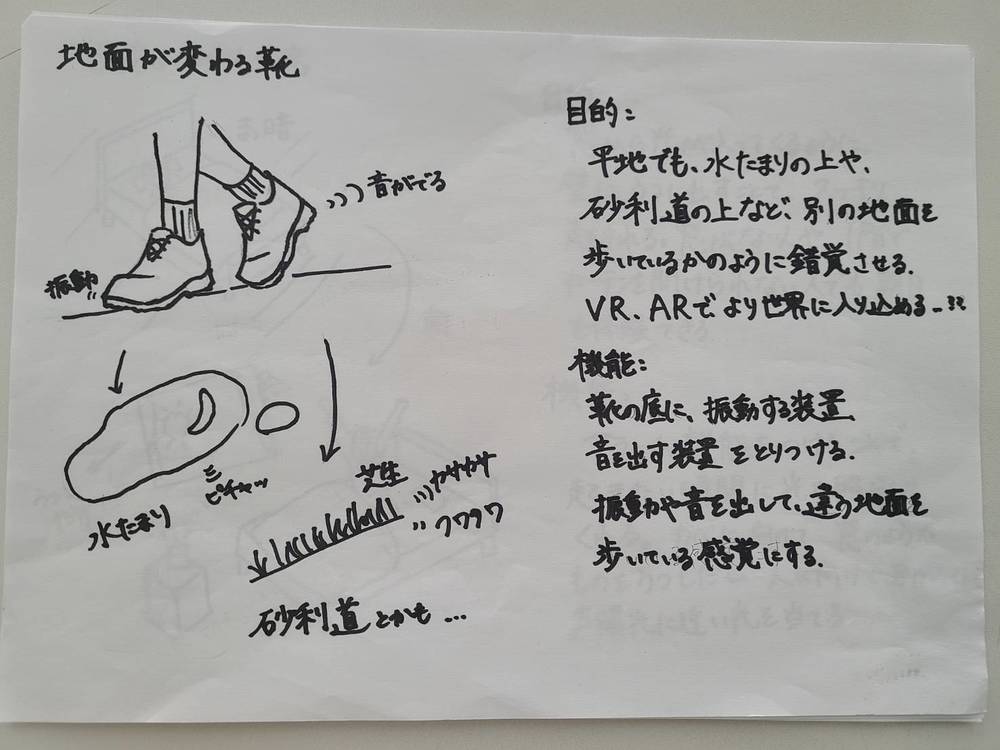 地面が変わる靴
音がでる
振動
水たまり
ピチャッ
芝生
カサカサ
フワフワ
砂利道とかも…
目的:
平地でも、水たまりの上や、
砂利道の上など、別の地面を
歩いているかのように錯覚させる.
VR、ARで、より世界に入り込める…??
機能:
靴の底に、振動する装置、
音を出す装置をとりつける.
振動や音を出して、違う地面を
歩いている感覚にする.